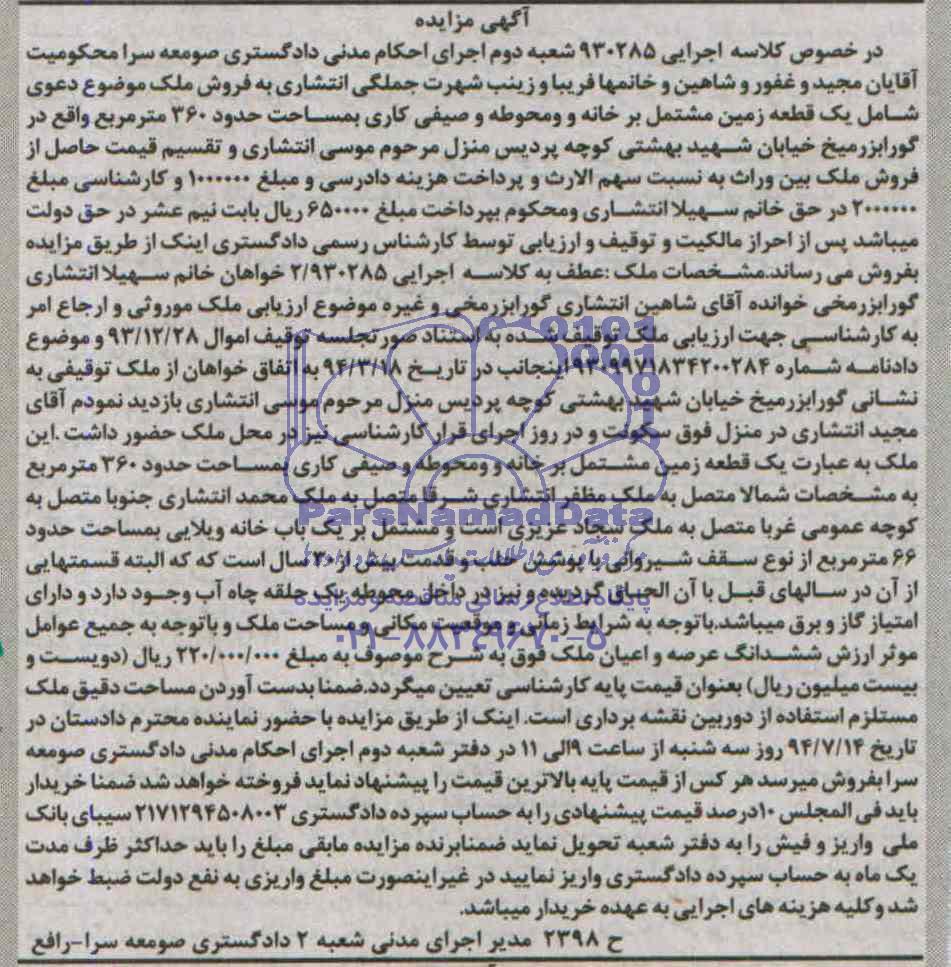 آگهی مزایده
در خصوص کلاسه اجرایی ۹۳۰۲۸۵ شعبه دوم اجرای احکام مدنی دادگستری صومعه سرا محکومیت
آقایان مجید و غفور و شاهین و خانمها فریبا و زینب شهرت جملگی انتشاری به فروش ملک موضوع دعوی
شامل یک قطعه زمین مشتمل بر خانه و ومحوطه و صیفی کاری بمساحت حدود ۳۶۰ مترمربع واقع در
گورابزرمیخ خیابان شهید بهشتی کوچه پردیس منزل مرحوم موسی انتشاری و تقسیم قیمت حاصل از
فروش ملک بین وراث به نسبت سهم الارث و پرداخت هزینه دادرسی و مبلغ ۱۰۰۰۰۰۰ و کارشناسی مبلغ
۲۰۰۰۰۰۰ در حق خانم سهیلا انتشاری ومحکوم بپرداخت مبلغ ۶۵۰۰۰۰ ریال بابت نیم عشر در حق دولت
میباشد پس از احراز مالکیت و توقیف و ارزیابی توسط کارشناس رسمی دادگستری اینک از طریق مزایده
بفروش می رساند.مشخصات ملک :عطف به کلاسه اجرایی ۲/۹۳۰۲۸۵ خواهان خانم سهیلا انتشاری
گورابزرمخی خوانده آقای شاهین انتشاری گورابزرمخی و غیره موضوع ارزیابی ملک موروثی و ارجاع امر
به کارشناسی جهت ارزیابی ملک توقیف شده به استناد صورتجلسه توقیف اموال ۹۳/۱۲/۲۸ و موضوع
دادنامه شماره ۹۳۰۹۹۷۱۸۳۴۲۰۰۲۸۴ اینجانب در تاریخ ۹۴/۳/۱۸ به اتفاق خواهان از ملک توقیفی به
نشانی گورابزرمیخ خیابان شهید بهشتی کوچه پردیس منزل مرحوم موسی انتشاری بازدید نمودم آقای
مجید انتشاری در منزل فوق سکونت و در روز اجرای قرار کارشناسی نیز در محل ملک حضور داشت .این
ملک به عبارت یک قطعه زمین مشتمل بر خانه و ومحوطه و صیفی کاری بمساحت حدود ۳۶۰ مترمربع
به مشخصات شمالا متصل به ملک مظفر انتشاری شرقا متصل به ملک محمد انتشاری جنوبا متصل به
کوچه عمومی غربا متصل به ملک عزیزی است و مشتمل بر یک باب خانه ویلایی بمساحت حدود
ParsNamadData
۶۶ مترمربع از نوع سقف شیروانی با پوشش حلب و قدمت بیش از ۳۰ سال است که که البته قسمتهایی
از آن در سالهای قبل با آن الحاق گردیده و نیز در داخل محوطه یک حلقه چاه آب وجود دارد و دارای
پایگاه اطلاع رسانی مناقصه و مزایده
امتیاز گاز و برق میباشد.باتوجه به شرایط زمانی و موقعیت مکانی و مساحت ملک و باتوجه به جمیع عوامل
۰۲۱-۸۸۳۴۹۶۷۰-۵
موثر ارزش ششدانگ عرصه و اعیان ملک فوق به شرح موصوف به مبلغ ۲۲۰/۰۰۰/۰۰۰ ریال (دویست و
بیست میلیون ریال) بعنوان قیمت پایه کارشناسی تعیین میگردد.ضمنا بدست آوردن مساحت دقیق ملک
مستلزم استفاده از دوربین نقشه برداری است. اینک از طریق مزایده با حضور نماینده محترم دادستان در
تاریخ ۹۴/۷/۱۴ روز سه شنبه از ساعت ۹الی ۱۱ در دفتر شعبه دوم اجرای احکام مدنی دادگستری صومعه
سرا بفروش میرسد هر کس از قیمت پایه بالاترین قیمت را پیشنهاد نماید فروخته خواهد شد ضمنا خریدار
باید فی المجلس ۱۰درصد قیمت پیشنهادی را به حساب سپرده دادگستری ۲۱۷۱۲۹۴۵۰۸۰۰۳ سیبای بانک
ملی واریز و فیش را به دفتر شعبه تحویل نماید ضمنابرنده مزایده مابقی مبلغ را باید حداکثر ظرف مدت
یک ماه به حساب سپرده دادگستری واریز نمایید در غیراینصورت مبلغ واریزی به نفع دولت ضبط خواهد
شد وکلیه هزینه های اجرایی به عهده خریدار میباشد.
ح ۲۳۹۸ مدیر اجرای مدنی شعبه ۲ دادگستری صومعه سرا-رافع